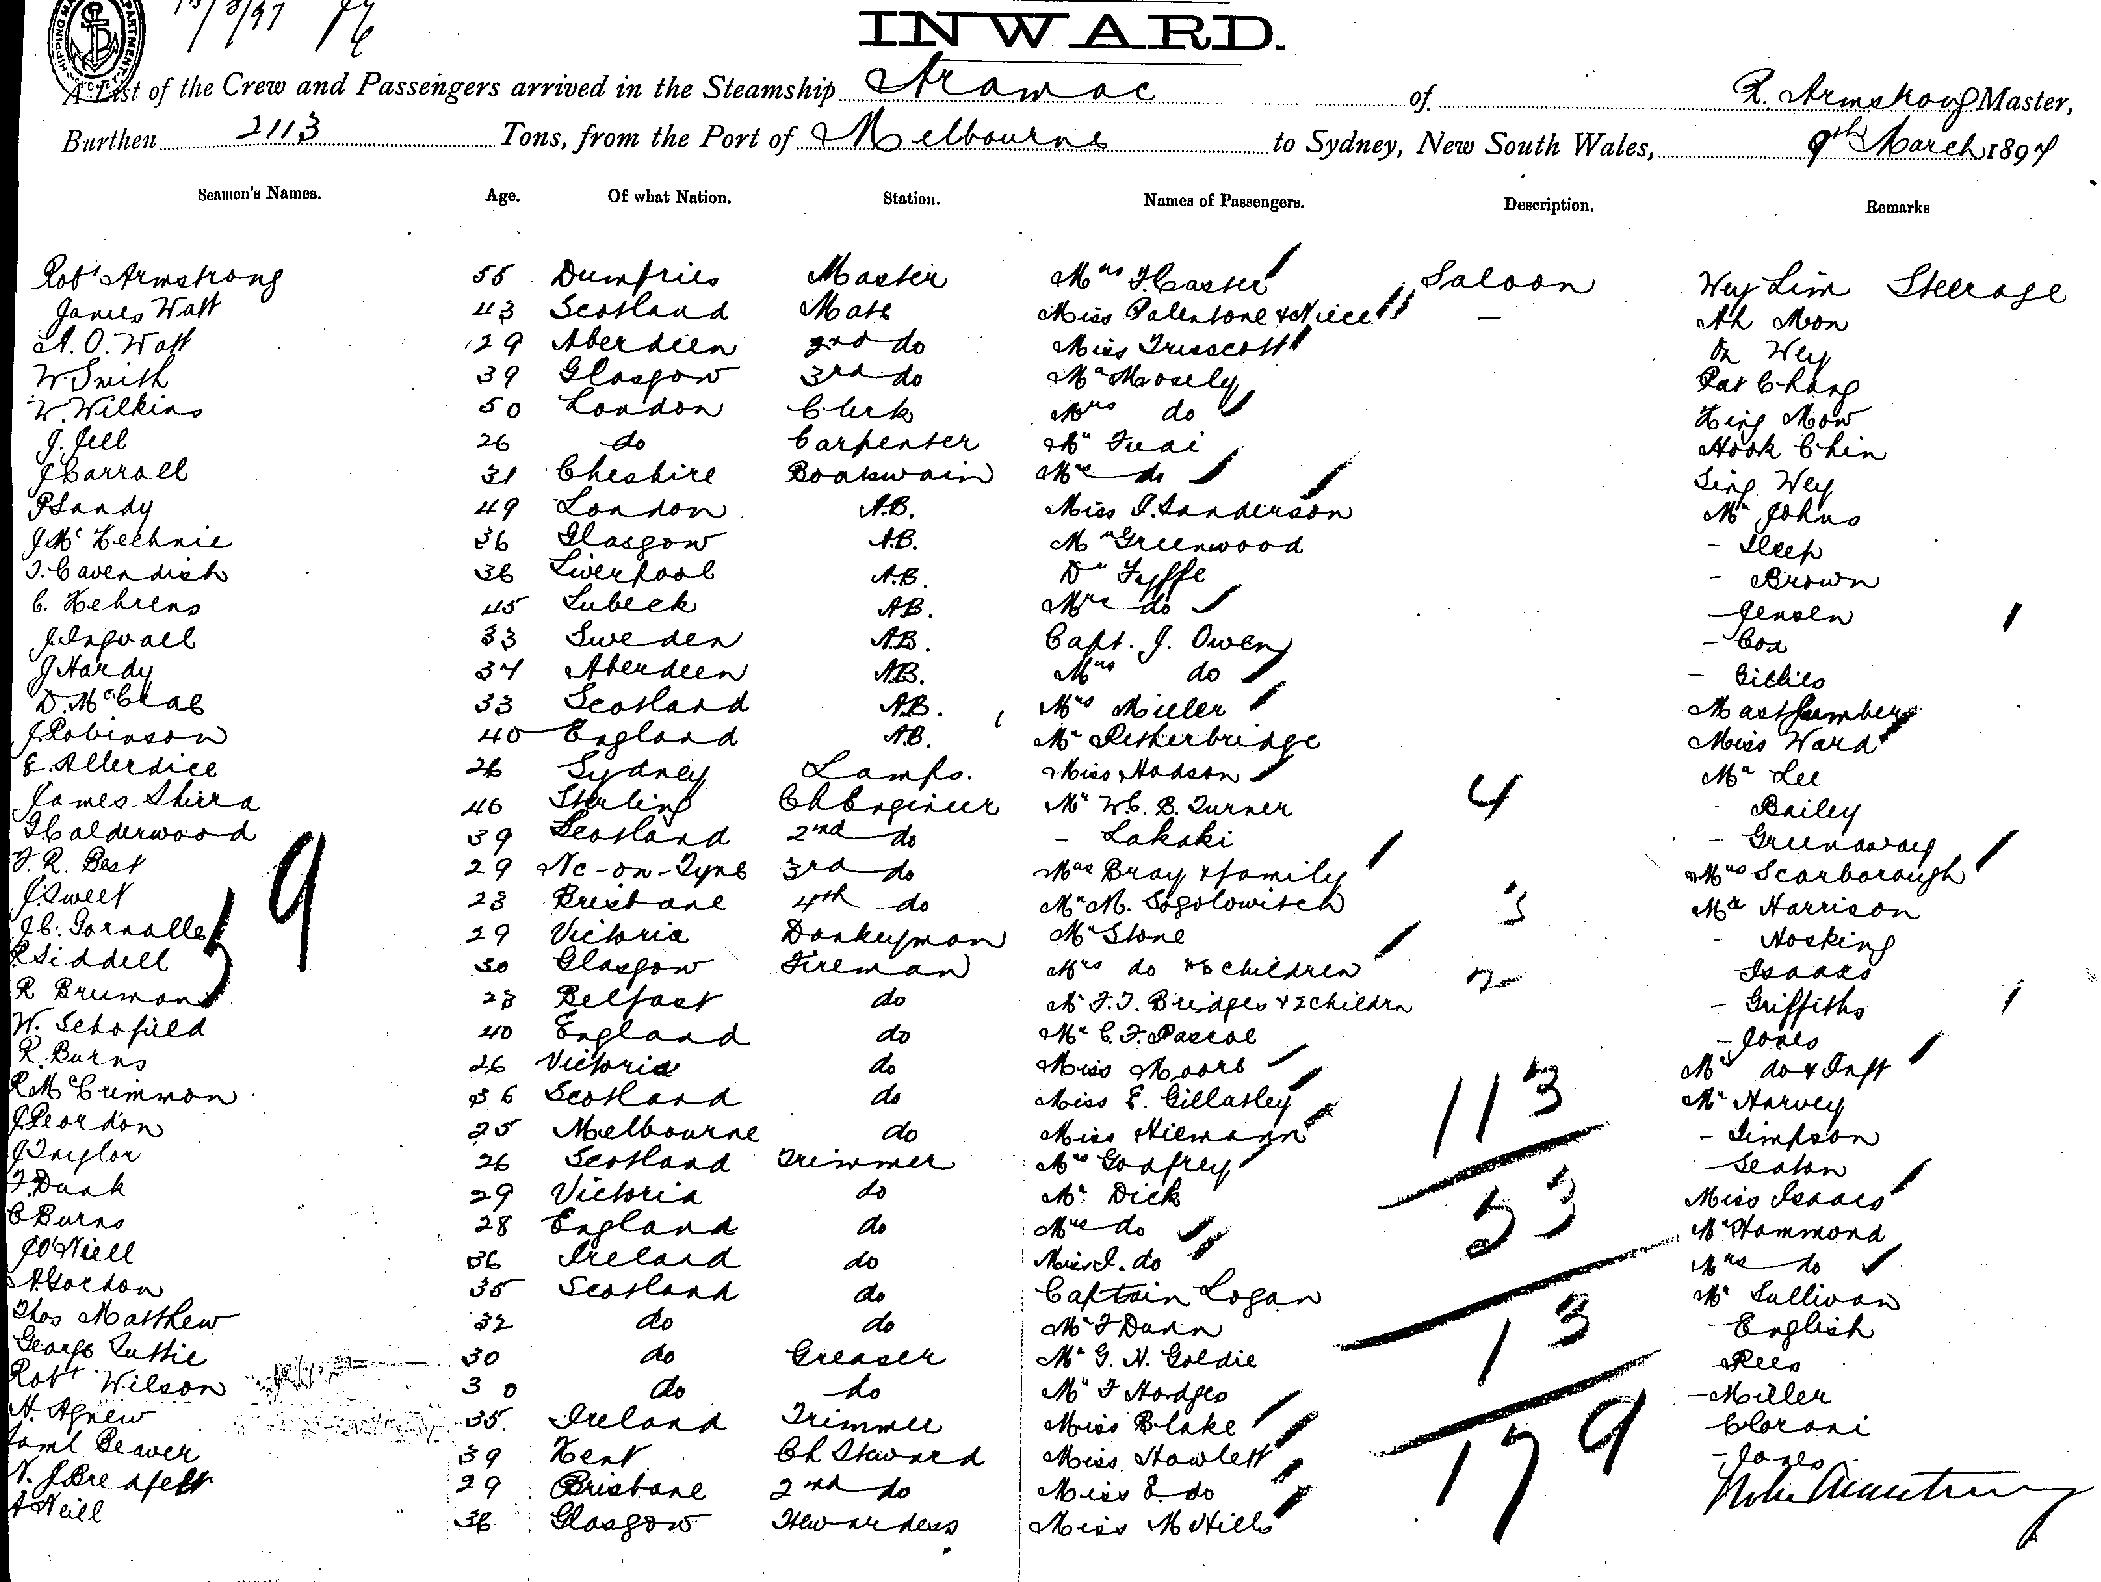 INWARD.
A List of the Crew and Passengers arrived in the Steamship Aramac of R. Armstrong Master,
Burthen 2113 Tons, from the Port of Melbourne to Sydney, New South Wales, 9th March 1897
Seamen's Names. Age. Of what Nation. Station. Names of Passengers. Description. Remarks
Robt Armstrong 55 Dumfries Master Mrs F. Caster Saloon Wey Lim Steerage
James Watt 43 Scotland Mate Miss Palentone & Niece - Ah Mon
A. O. Watt 29 Aberdeen 2nd do Miss Trusscott On Wey
W Smith 39 Glasgow 3rd do Mr Mosely Pat Chang
W. Wilkins 50 London Clerk Mrs do King Mow
J. Jell 26 do Carpenter Mr Tuai Hook Chin
J Carroll 31 Cheshire Boatswain Mrs do Sing Wey
P Landy 49 London A.B. Miss I. Sanderson Mr Johns
J. Mc Kechnie 36 Glasgow A.B. Mr Greenwood - Sleep
T. Cavendish 36 Liverpool A.B. Dr Fyffe - Brown
C. Behrens 45 Lubeck AB. Mrs do - Jensen
J Ingvall 33 Sweden AB. Capt. J. Owen - Cox
J Hardy 34 Aberdeen AB. Mrs do - Gillies
D. McCrae 33 Scotland AB. Mrs Miller Mast
J Robinson 40 England AB. Mr Petherbridge Miss Ward
E. Allerdice 26 Sydney Lamps. Miss Hodson Mr Lee
James Shirra 46 Sterling Ch Engineer Mr W. B. Turner 4 Bailey
J Calderwood 39 Scotland 2nd do - Lakski - Greenaway
F. R. Best 29 Nc-on-Tyne 3rd do Mrs Bray & family Mrs Scarborough
J Sweet 23 Brisbane 4th do Mr M. Sogolowitch 3 Mr Harrison
J. C. Gornalle 59 29 Victoria Donkeyman Mr Stone - Hosking
R Siddell 30 Glasgow Fireman Mrs do & children 2 - Isaacs
R 28 Belfast do Mr F. J. Bridges & 2 childrn - Griffiths
W. Schofield 40 England do Mr C. F. Pascoe - Jones
R. Burns 26 Victoria do Miss Moore Mrs do & Inft
R McCrimmon 36 Scotland do Miss E. Gillatley 113 Mr Harvey
J Reordon 25 Melbourne do Miss Hiemann - Simpson
J Taylor 26 Scotland Trimmer Mrs Godfrey - Seaton
F. Dunk 29 Victoria do Mr Dick 53 Miss Isaacs
C Burns 28 England do Mrs do Mr Hammond
J O'Niell 36 Ireland do Miss I. do Mrs do
A Gordon 35 Scotland do Captain Logan Mr Sullivan
Thos Matthew 32 do do Mr F Dunn 13 - English
George Tuttie 30 do Greaser Mr G. H. Goldie - Rees
Robt Wilson 30 do do Mr F Hodges - Miller
H. Agnew 35. Ireland Trimmer Miss Blake
Saml Beaver 39 Kent Ch Steward Miss Howlett 179 - Jones
N. J Bredfelt 29 Brisbane 2nd do Miss E. do
A Neill 36 Glasgow Stewardess Miss M Hills